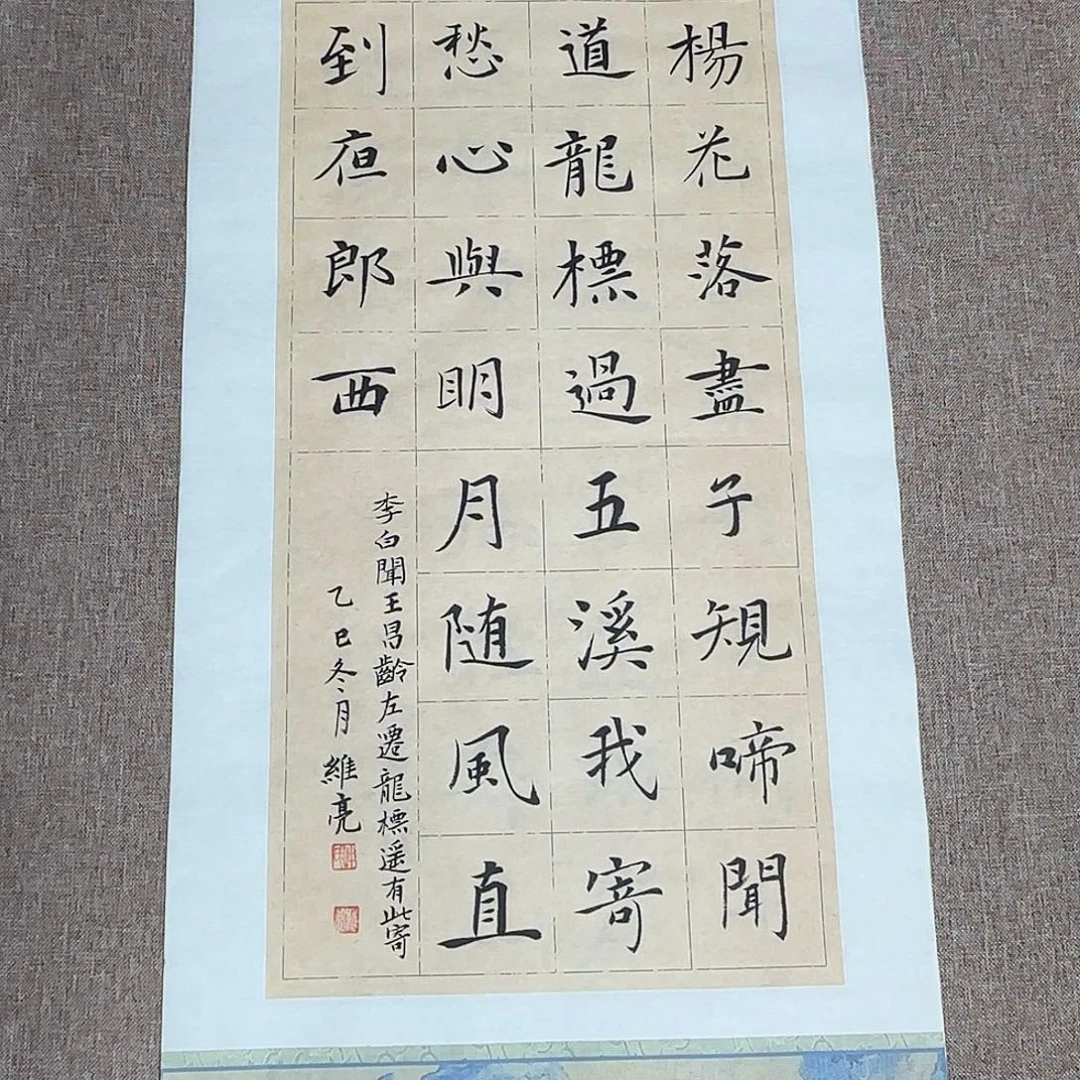 楊花落盡子規啼聞
道龍標過五溪我寄
愁心與明月随風直
到夜郎西
李白聞王昌齡左遷龍標遥有此寄
乙巳冬月維亮